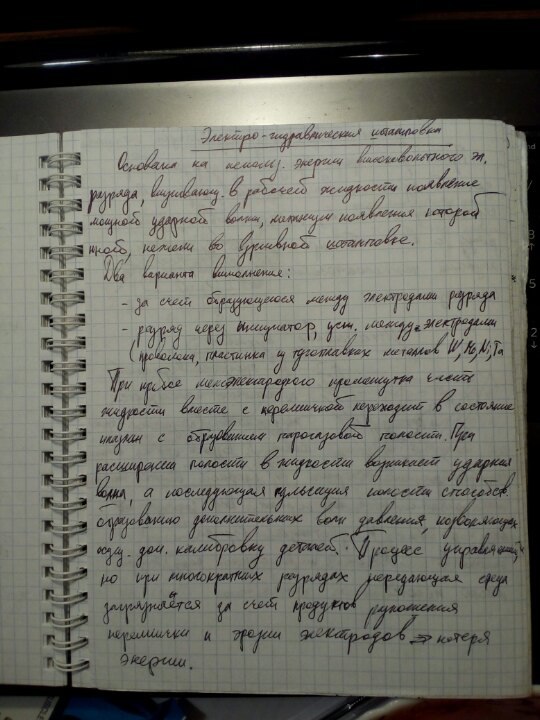 Электро-гидравлическая штамповка
Основана на использ. энергии высоковольтного эл.
разряда, вызывающ. в рабочей жидкости появление
мощной ударной волны, механизм появления которой
иной, нежели во взрывной штамповке.
Два варианта выполнения:
- за счет образующегося между электродами разряда
- разряд через инициатор, уст. между электродами
(проволока, пластинка из тугоплавких металлов W, Mo, Ni, Ta
При пробое межэлектродного промежутка часть
жидкости вместе с перемычкой переходит в состояние
плазмы с образованием парогазовой полости. При
расширении полости в жидкости возникает ударная
волна, а последующая пульсация полости способств.
образованию дополнительных волн давления, позволяющих
осущ. доп. калибровку деталей. Процесс управляемый,
но при многократных разрядах передающая среда
загрязняется за счет продуктов разрушения
перемычки и эрозии электродов => потеря
энергии.